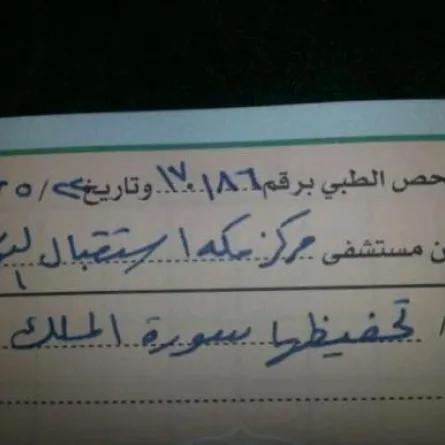 حص الطبي برقم ١٧٠١٨٦ وتاريخ ٢٢/٥
ن مستشفى مركز مكه استقبال
تحفيظها سورة الملك